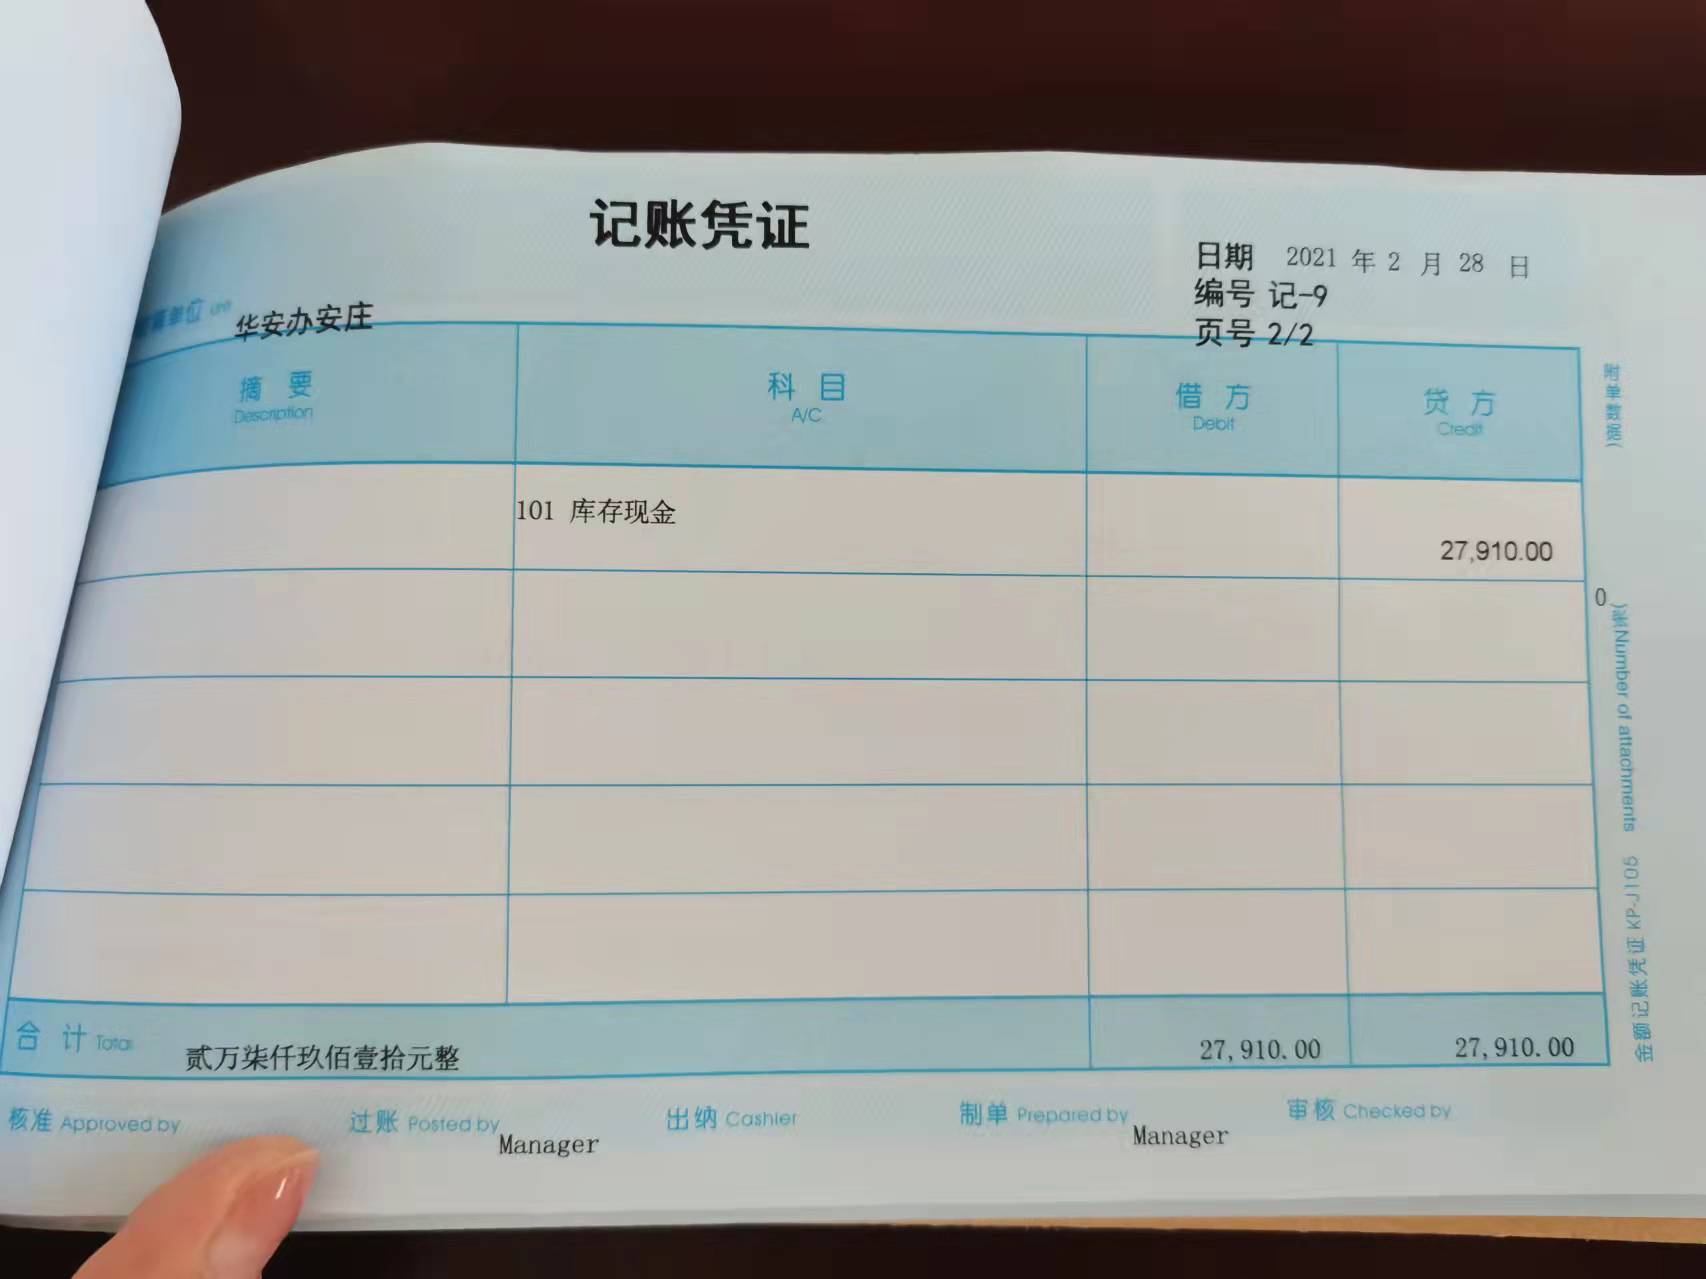 记账凭证
日期 2021 年 2 月 28 日
编号 记-9
页号 2/2
单位 Unit 华安办安庄
摘 要 科 目 借 方 贷 方
Description A/C Debit Credit
101 库存现金
27,910.00
附单数据
0
张)Number of attachments
金额记账凭证 KP-J105
合 计 Total 贰万柒仟玖佰壹拾元整 27,910.00 27,910.00
核准 Approved by 过账 Posted by Manager 出纳 Cashier 制单 Prepared by Manager 审核 Checked by